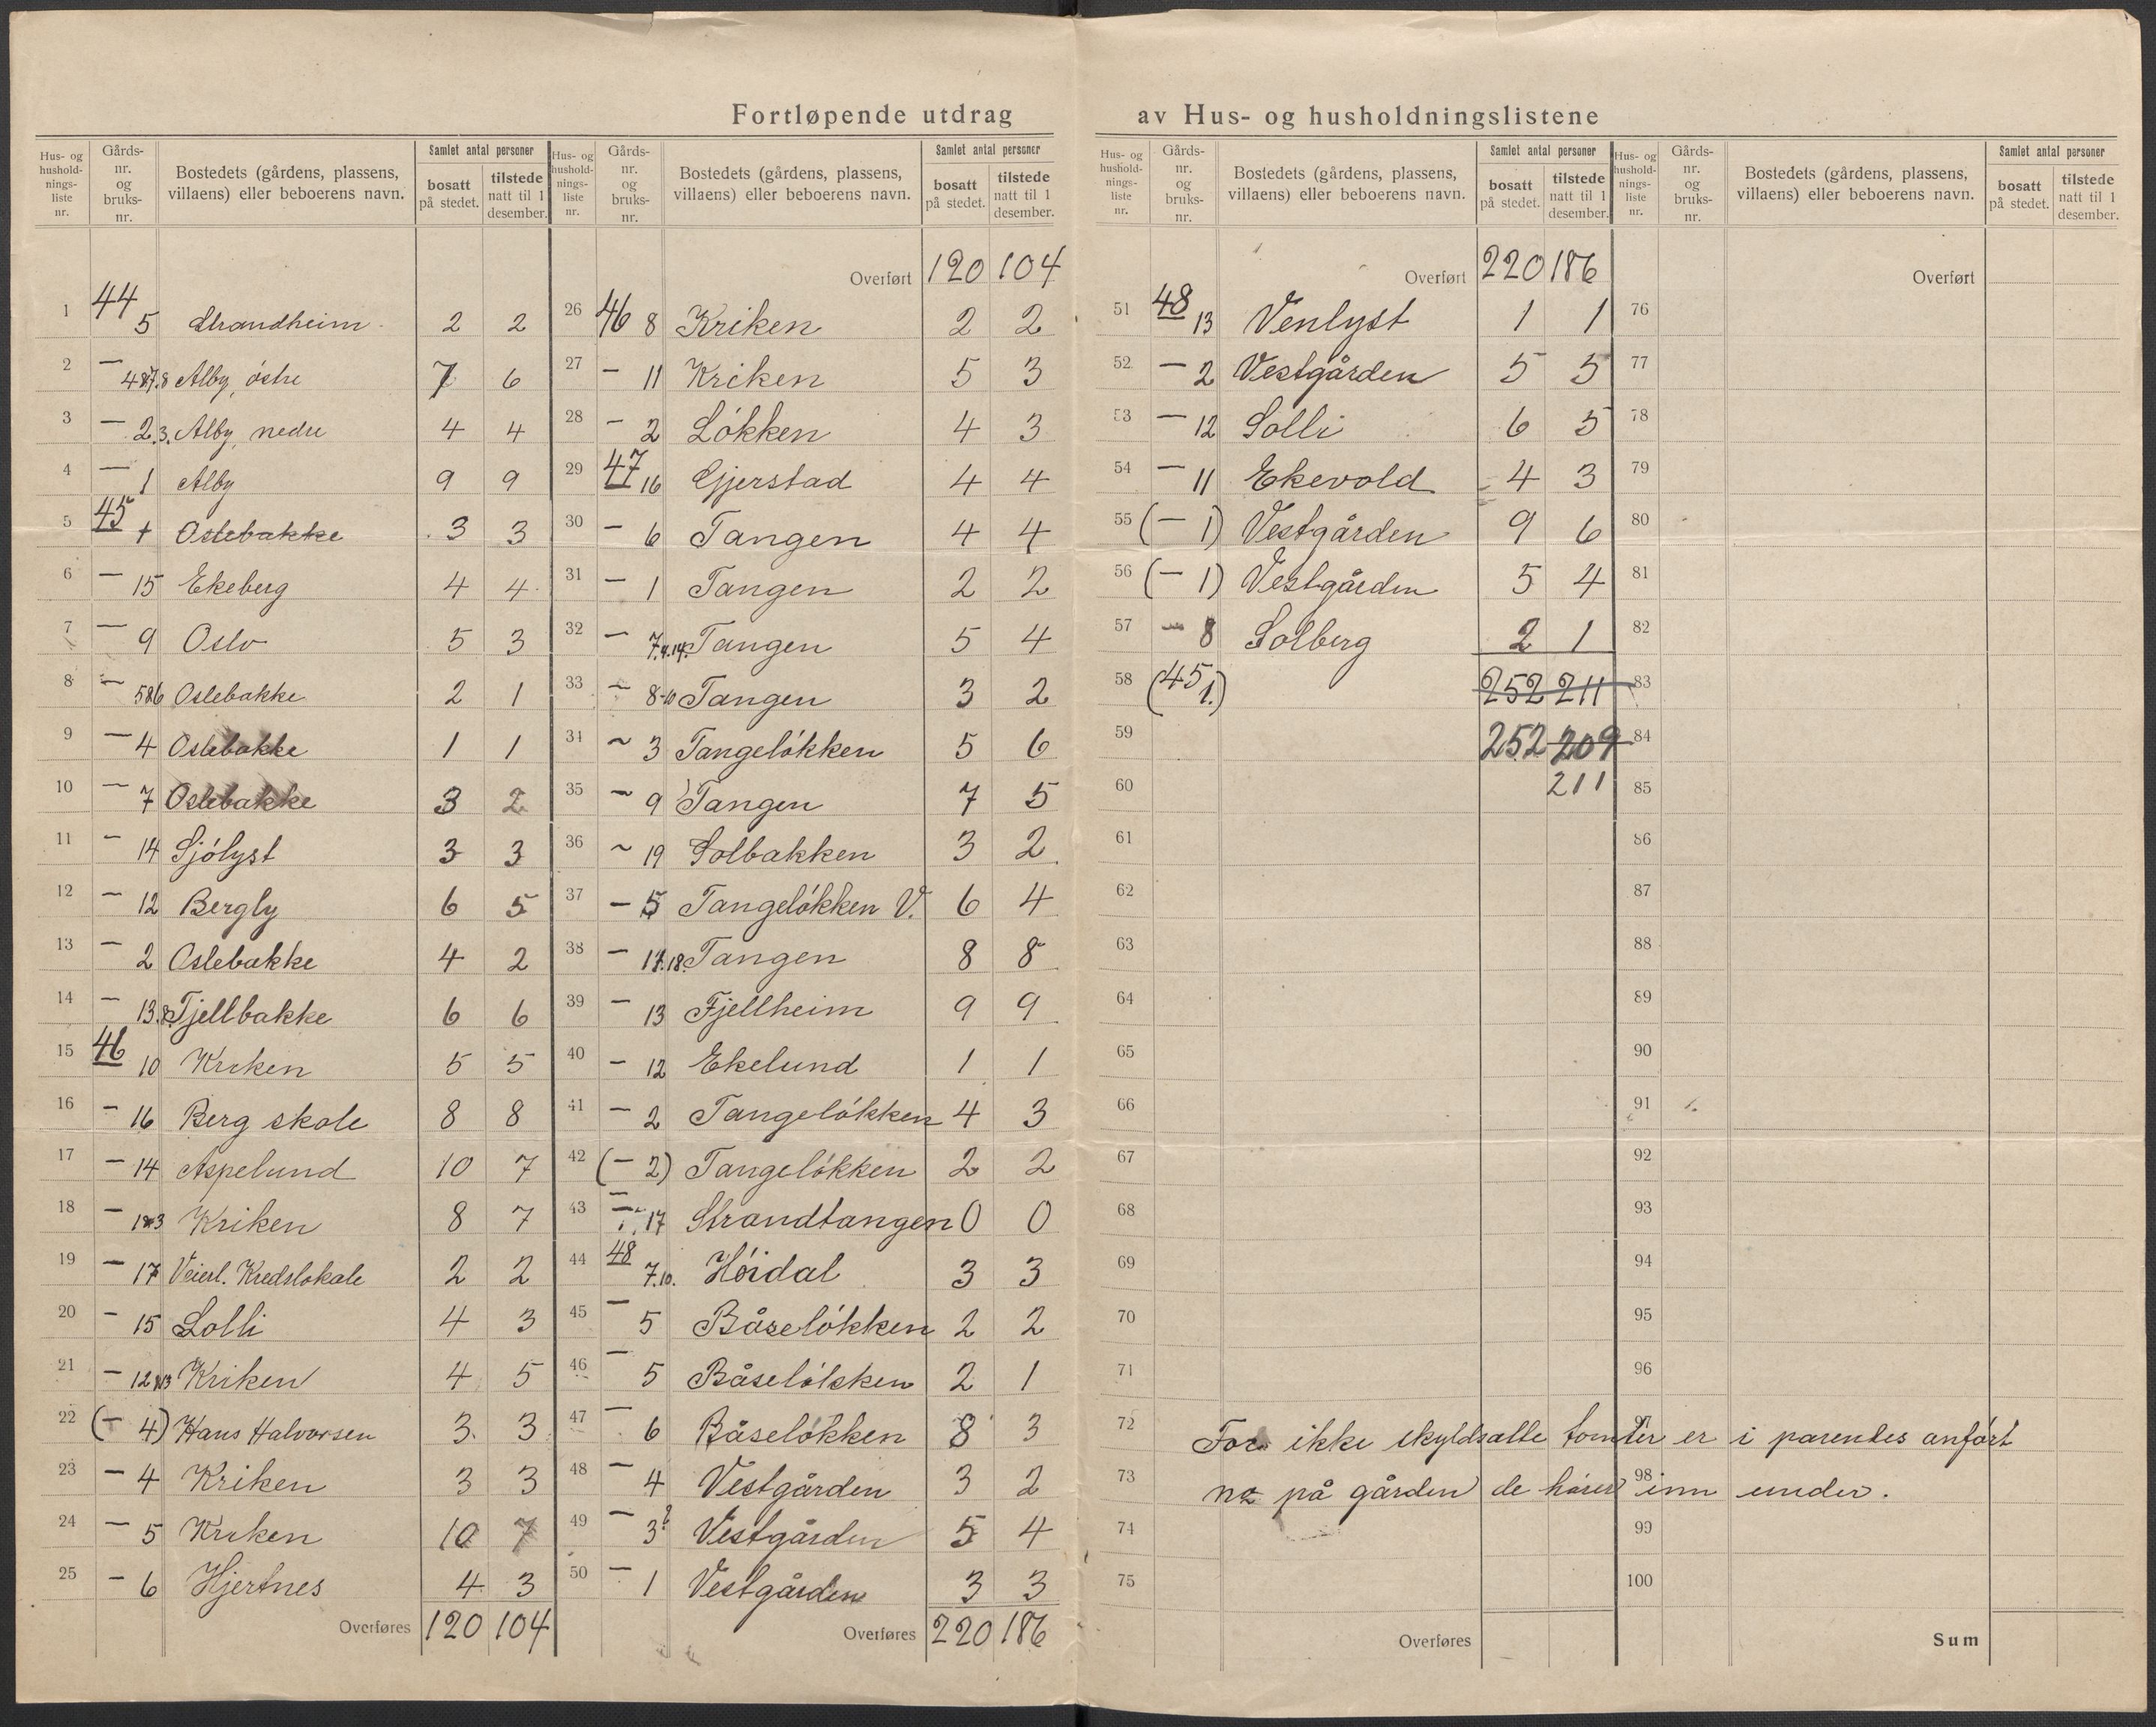 Fortløpende utdrag av Hus- og husholdningslistene
Hus- og husholdningsliste nr. | Gårds-nr. og bruks-nr. | Bostedets (gårdens, plassens, villaens) eller beboerens navn. | Samlet antal personer | bosatt på stedet. | tilstede natt til 1 desember.
1 44 5 Strandheim 2 2
2 — 4&7.8 Alby, östre 7 6
3 — 2.3. Alby, nedre 4 4
4 — 1 Alby 9 9
5 45 Oslebakke 3 3
6 — 15 Ekeberg 4 4
7 — 9 Oslo 5 3
8 — 5&6 Oslebakke 2 1
9 — 4 Oslebakke 1 1
10 — 7 Oslebakke 3 2
11 — 14 Sjölyst 3 3
12 — 12 Bergly 6 5
13 — 2 Oslebakke 4 2
14 — 13.8 Fjellbakke 6 6
15 46 10 Kriken 5 5
16 — 16 Berg skole 8 8
17 — 14 Aspelund 10 7
18 — 1&3 Kriken 8 7
19 — 17 Veierl. Kredslokale 2 2
20 — 15 Solli 4 3
21 — 12&13 Kriken 4 5
22 (— 4) Hans Halvorsen 3 3
23 — 4 Kriken 3 3
24 — 5 Kriken 10 7
25 — 6 Hjertnes 4 3
Overføres 120 104
Hus- og husholdningsliste nr. | Gårds-nr. og bruks-nr. | Bostedets (gårdens, plassens, villaens) eller beboerens navn. | Samlet antal personer | bosatt på stedet. | tilstede natt til 1 desember.
Overført 120 104
26 46 8 Kriken 2 2
27 — 11 Kriken 5 3
28 — 2 Lökken 4 3
29 47 16 Gjerstad 4 4
30 — 6 Tangen 4 4
31 — 1 Tangen 2 2
32 — 7.4.14. Tangen 5 4
33 — 8-10 Tangen 3 2
34 ~ 3 Tangelökken 5 6
35 ~ 9 Tangen 7 5
36 ~ 19 Solbakken 3 2
37 — 5 Tangelökken V. 6 4
38 — 17.18. Tangen 8 8
39 — 13 Fjellheim 9 9
40 — 12 Ekelund 1 1
41 — 2 Tangelökken 4 3
42 (— 2) Tangelökken 2 2
43 — 17 Strandtangen 0 0
44 48 7.10. Höidal 3 3
45 — 5 Båselökken 2 2
46 — 5 Båselökken 2 1
47 — 6 Båselökken 8 3
48 — 4 Vestgården 3 2
49 — 3? Vestgården 5 4
50 — 1 Vestgården 3 3
Overføres 220 186
Hus- og husholdningsliste nr. | Gårds-nr. og bruks-nr. | Bostedets (gårdens, plassens, villaens) eller beboerens navn. | Samlet antal personer | bosatt på stedet. | tilstede natt til 1 desember.
Overført 220 186
51 48 13 Venlyst 1 1
52 — 2 Vestgården 5 5
53 — 12 Solli 6 5
54 — 11 Ekevold 4 3
55 (— 1) Vestgården 9 6
56 (— 1) Vestgården 5 4
57 — 8 Solberg 2 1
58 (45 1.) 252 211
59 252 209
60 211
61
62
63
64
65
66
67
68
69
70
71
72 For ikke skyldsatte tomter er i parentes anført
73 no på gården de hører inn under.
74
75
Overføres
Hus- og husholdningsliste nr. | Gårds-nr. og bruks-nr. | Bostedets (gårdens, plassens, villaens) eller beboerens navn. | Samlet antal personer | bosatt på stedet. | tilstede natt til 1 desember.
Overført
76
77
78
79
80
81
82
83
84
85
86
87
88
89
90
91
92
93
94
95
96
97
98
99
100
Sum